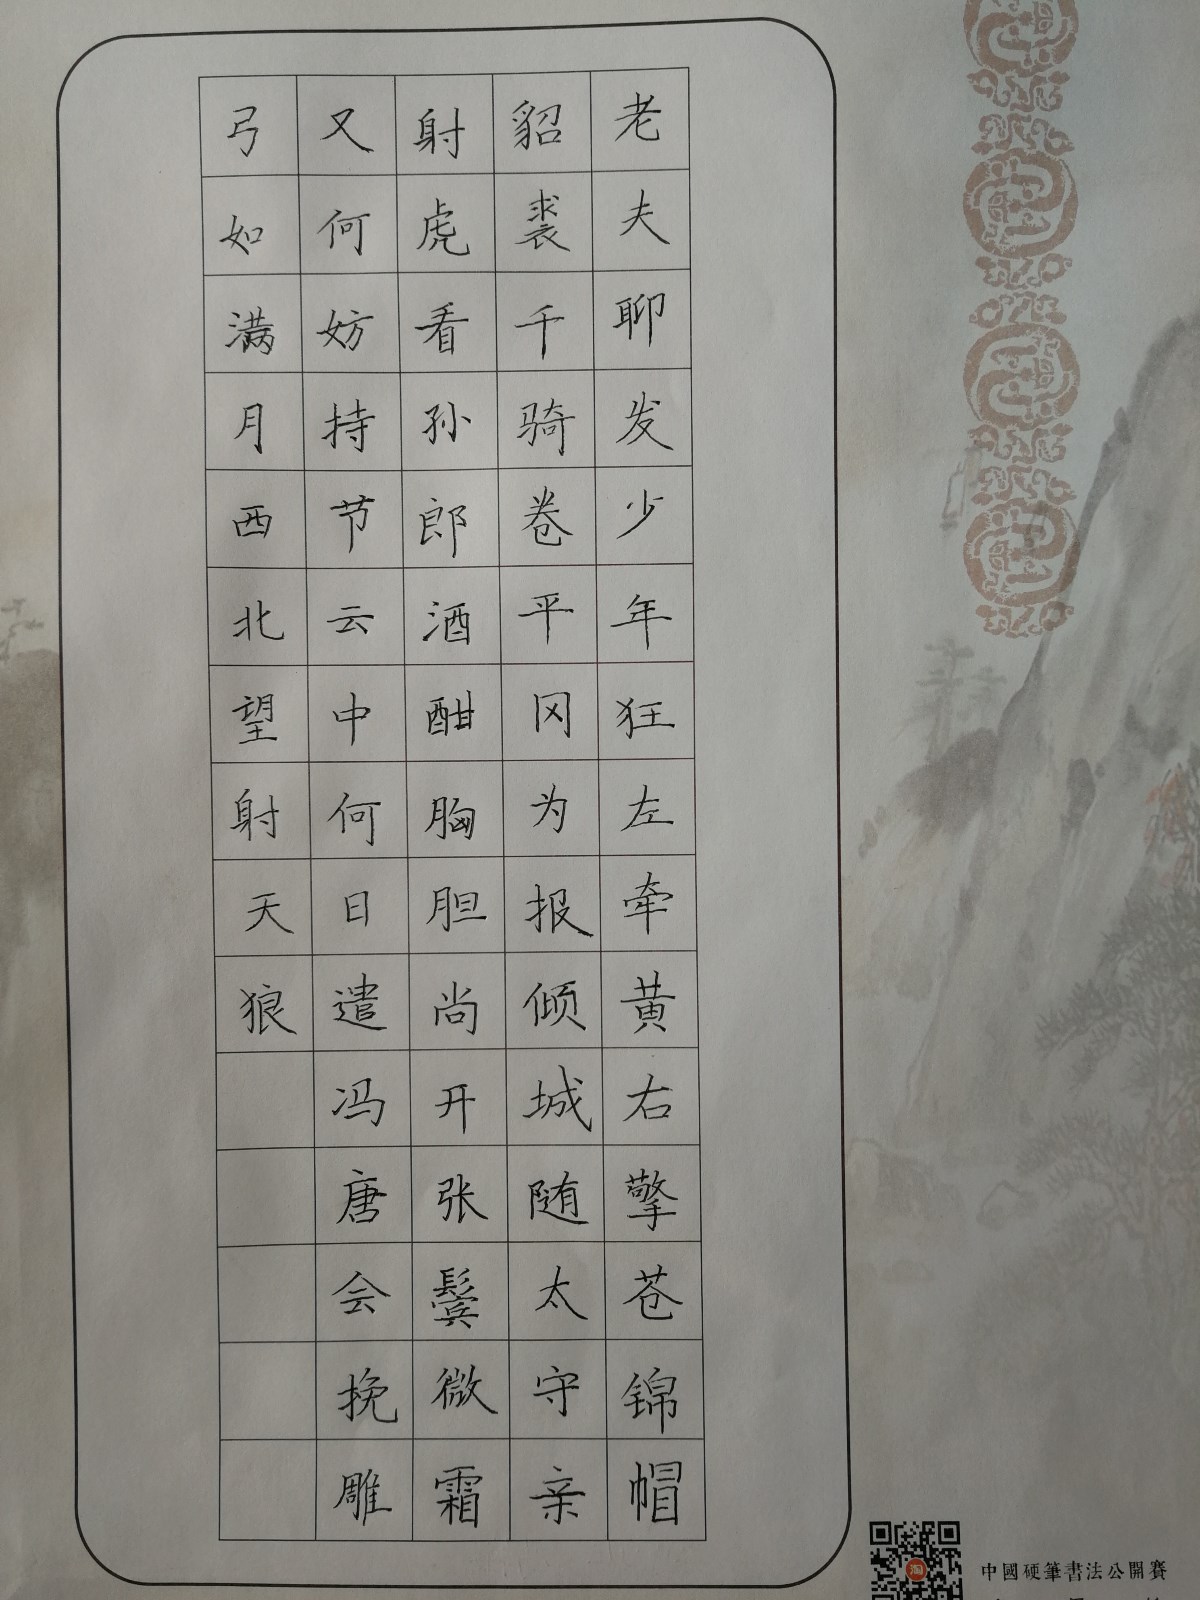 老夫聊发少年狂左牵黄右擎苍锦帽
貂裘千骑卷平冈为报倾城随太守亲
射虎看孙郎酒酣胸胆尚开张鬓微霜
又何妨持节云中何日遣冯唐会挽雕
弓如满月西北望射天狼
中國硬筆書法公開賽